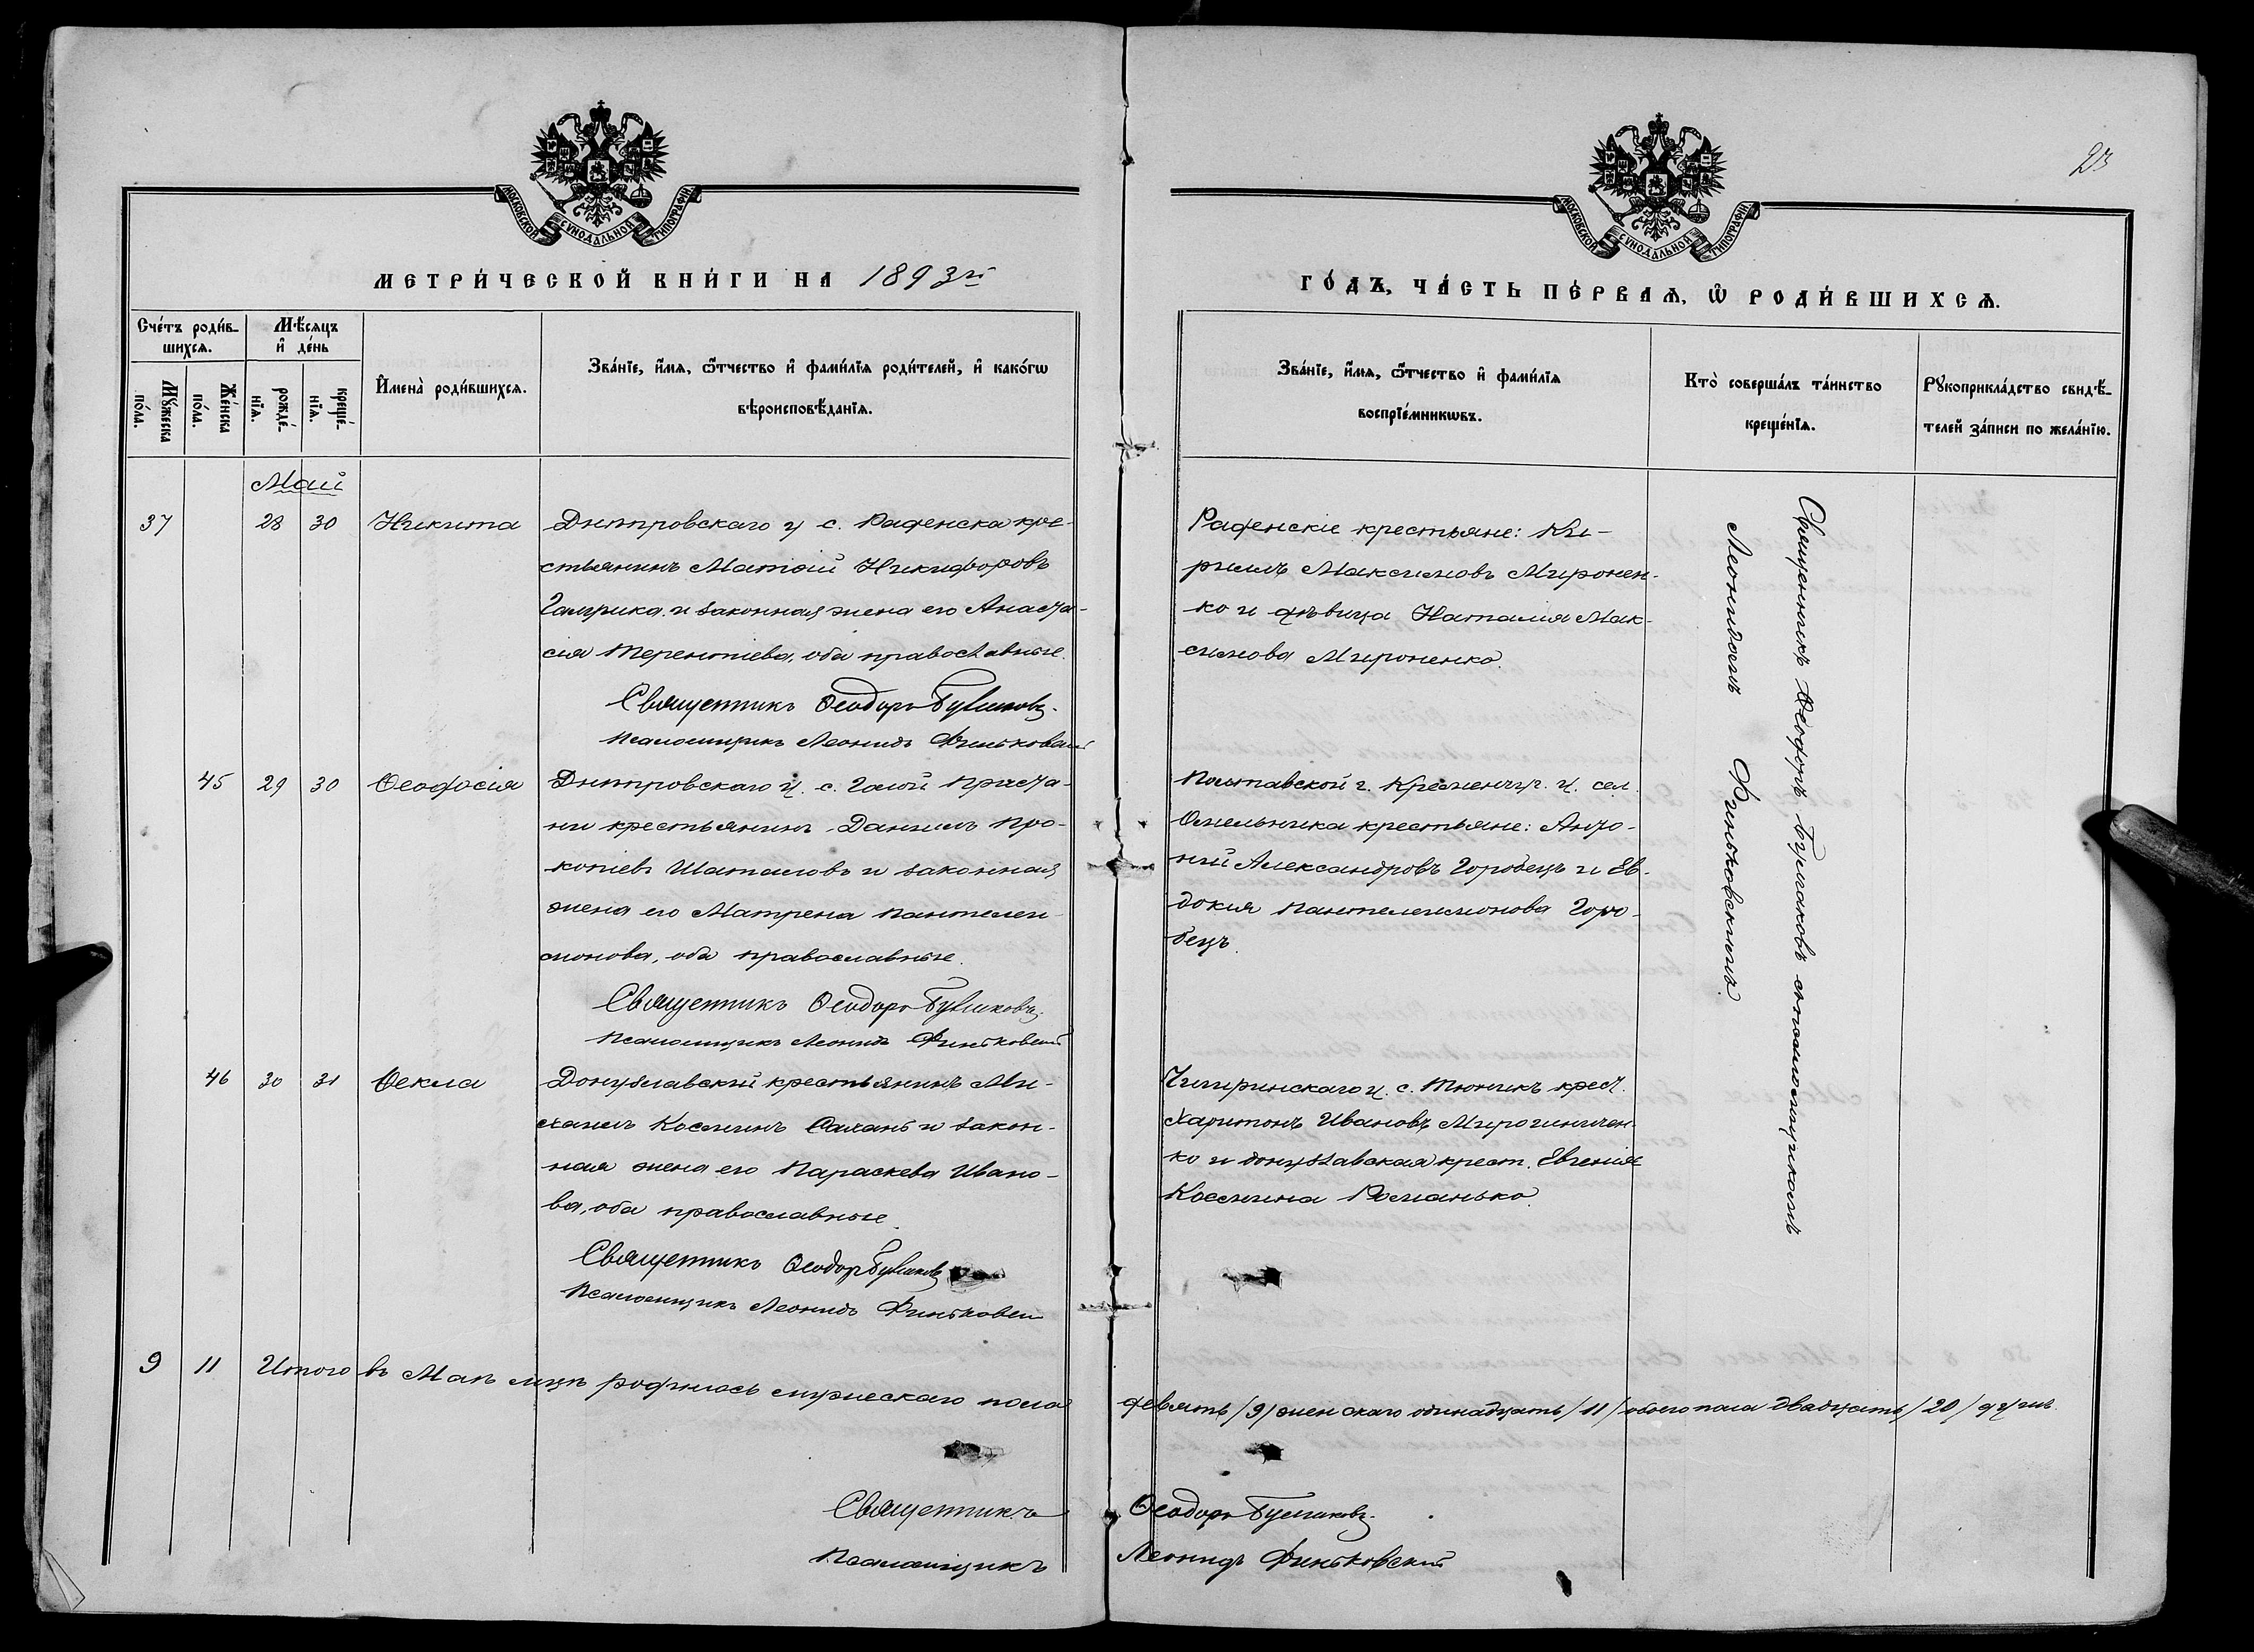 23
МОСКОВСКОЙ СѴНОДАЛЬНОЙ ТИПОГРАФІИ
МОСКОВСКОЙ СѴНОДАЛЬНОЙ ТИПОГРАФІИ
МЕТРИ́ЧЕСКОЙ КНИ́ГИ НА 1893й
ГО́ДЪ, ЧА́СТЬ ПЕ́РВАѦ, Ѡ РОДИ́ВШИХСѦ.
Сче́тъ роди́в-
шихсѧ.
Мꙋ́жеска по́ла.
Же́нска по́ла.
Мѣ́сѧцъ
и де́нь
рожде́-
нїѧ.
креще́-
нїѧ.
Имена̀ роди́вшихсѧ.
Зва́нїе, и́мѧ, ѻ́тчество и фами́лїѧ роди́телей, и како́гѡ
вѣроисповѣ́данїѧ.
Зва́нїе, и́мѧ, ѻ́тчество и фами́лїѧ
воспрїе́мникѡвъ.
Кто̀ соверша́лъ та́инство
креще́нїѧ.
Рꙋкоприкла́дство свидѣ́-
телей за́писи по жела́нїю.
Май
37 28 30 Никита
Днѣпровскаго у с. Раденска кре-
стьянинъ Матѳій Никифоровъ
Гамрика и законная жена его Анаста-
сія Терентіева, оба православные.
Священникъ Ѳеодоръ Булшаковъ.
Псаломщикъ Леонидъ Финьковскій
Раденскіе крестьяне: Ки-
риллъ Максимовъ Миронен-
ко и дѣвица Наталія Мак-
симова Мироненко.
Священникъ Ѳеодоръ Булшаковъ съ псаломщикомъ
Леонидомъ Финьковскимъ.
45 29 30 Ѳеодосія
Днѣпровскаго у. с. Голой Приста-
ни крестьянинъ Даниилъ Про-
копіевъ Шаталовъ и законная
жена его Матрена Пантелеи-
монова, оба православные.
Священникъ Ѳеодоръ Булшаковъ.
Псаломщикъ Леонидъ Финьковскій
Полтавской г. Кременчуг. у. сел.
Омельника крестьяне: Анто-
ній Александровъ Горобецъ и Ев-
докія Пантелеимонова Горо-
бецъ.
46 30 31 Ѳекла
Донузлавскій крестьянинъ Ми-
хаилъ Косминъ Саханъ и закон-
ная жена его Параскева Ивано-
ва, оба православные.
Священникъ Ѳеодоръ Булшаковъ
Псаломщикъ Леонидъ Финьковскій
Чигиринскаго у. с. Тюнекъ крест.
Харитонъ Ивановъ Мирогинничен-
ко и донузлавская крест. Евгенія
Космина Романько.
9 11 Итого въ Маѣ мцѣ родилось мужескаго пола
девять /9/ женскаго одинадцать /11/ обоего пола двадцать /20/ душъ.
Священникъ Ѳеодоръ Булшаковъ.
Псаломщикъ Леонидъ Финьковскій